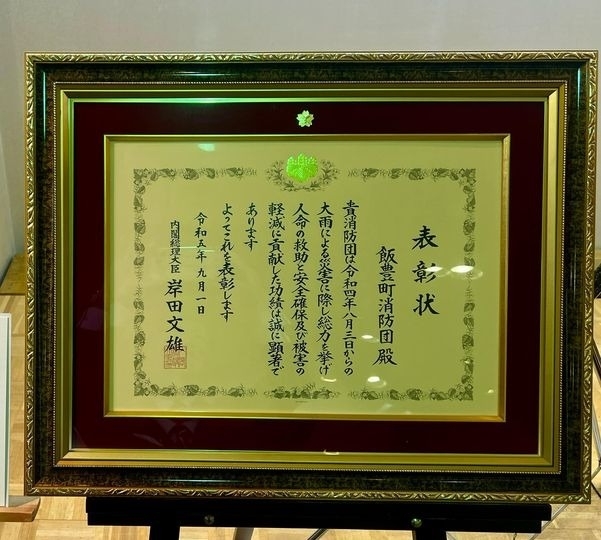 表彰状
飯豊町消防団殿
貴消防団は令和四年八月三日からの
大雨による災害に際し総力を挙げ
人命の救助と安全確保及び被害の
軽減に貢献した功績は誠に顕著で
あります
よってこれを表彰します
令和五年九月一日
内閣総理大臣 岸田文雄